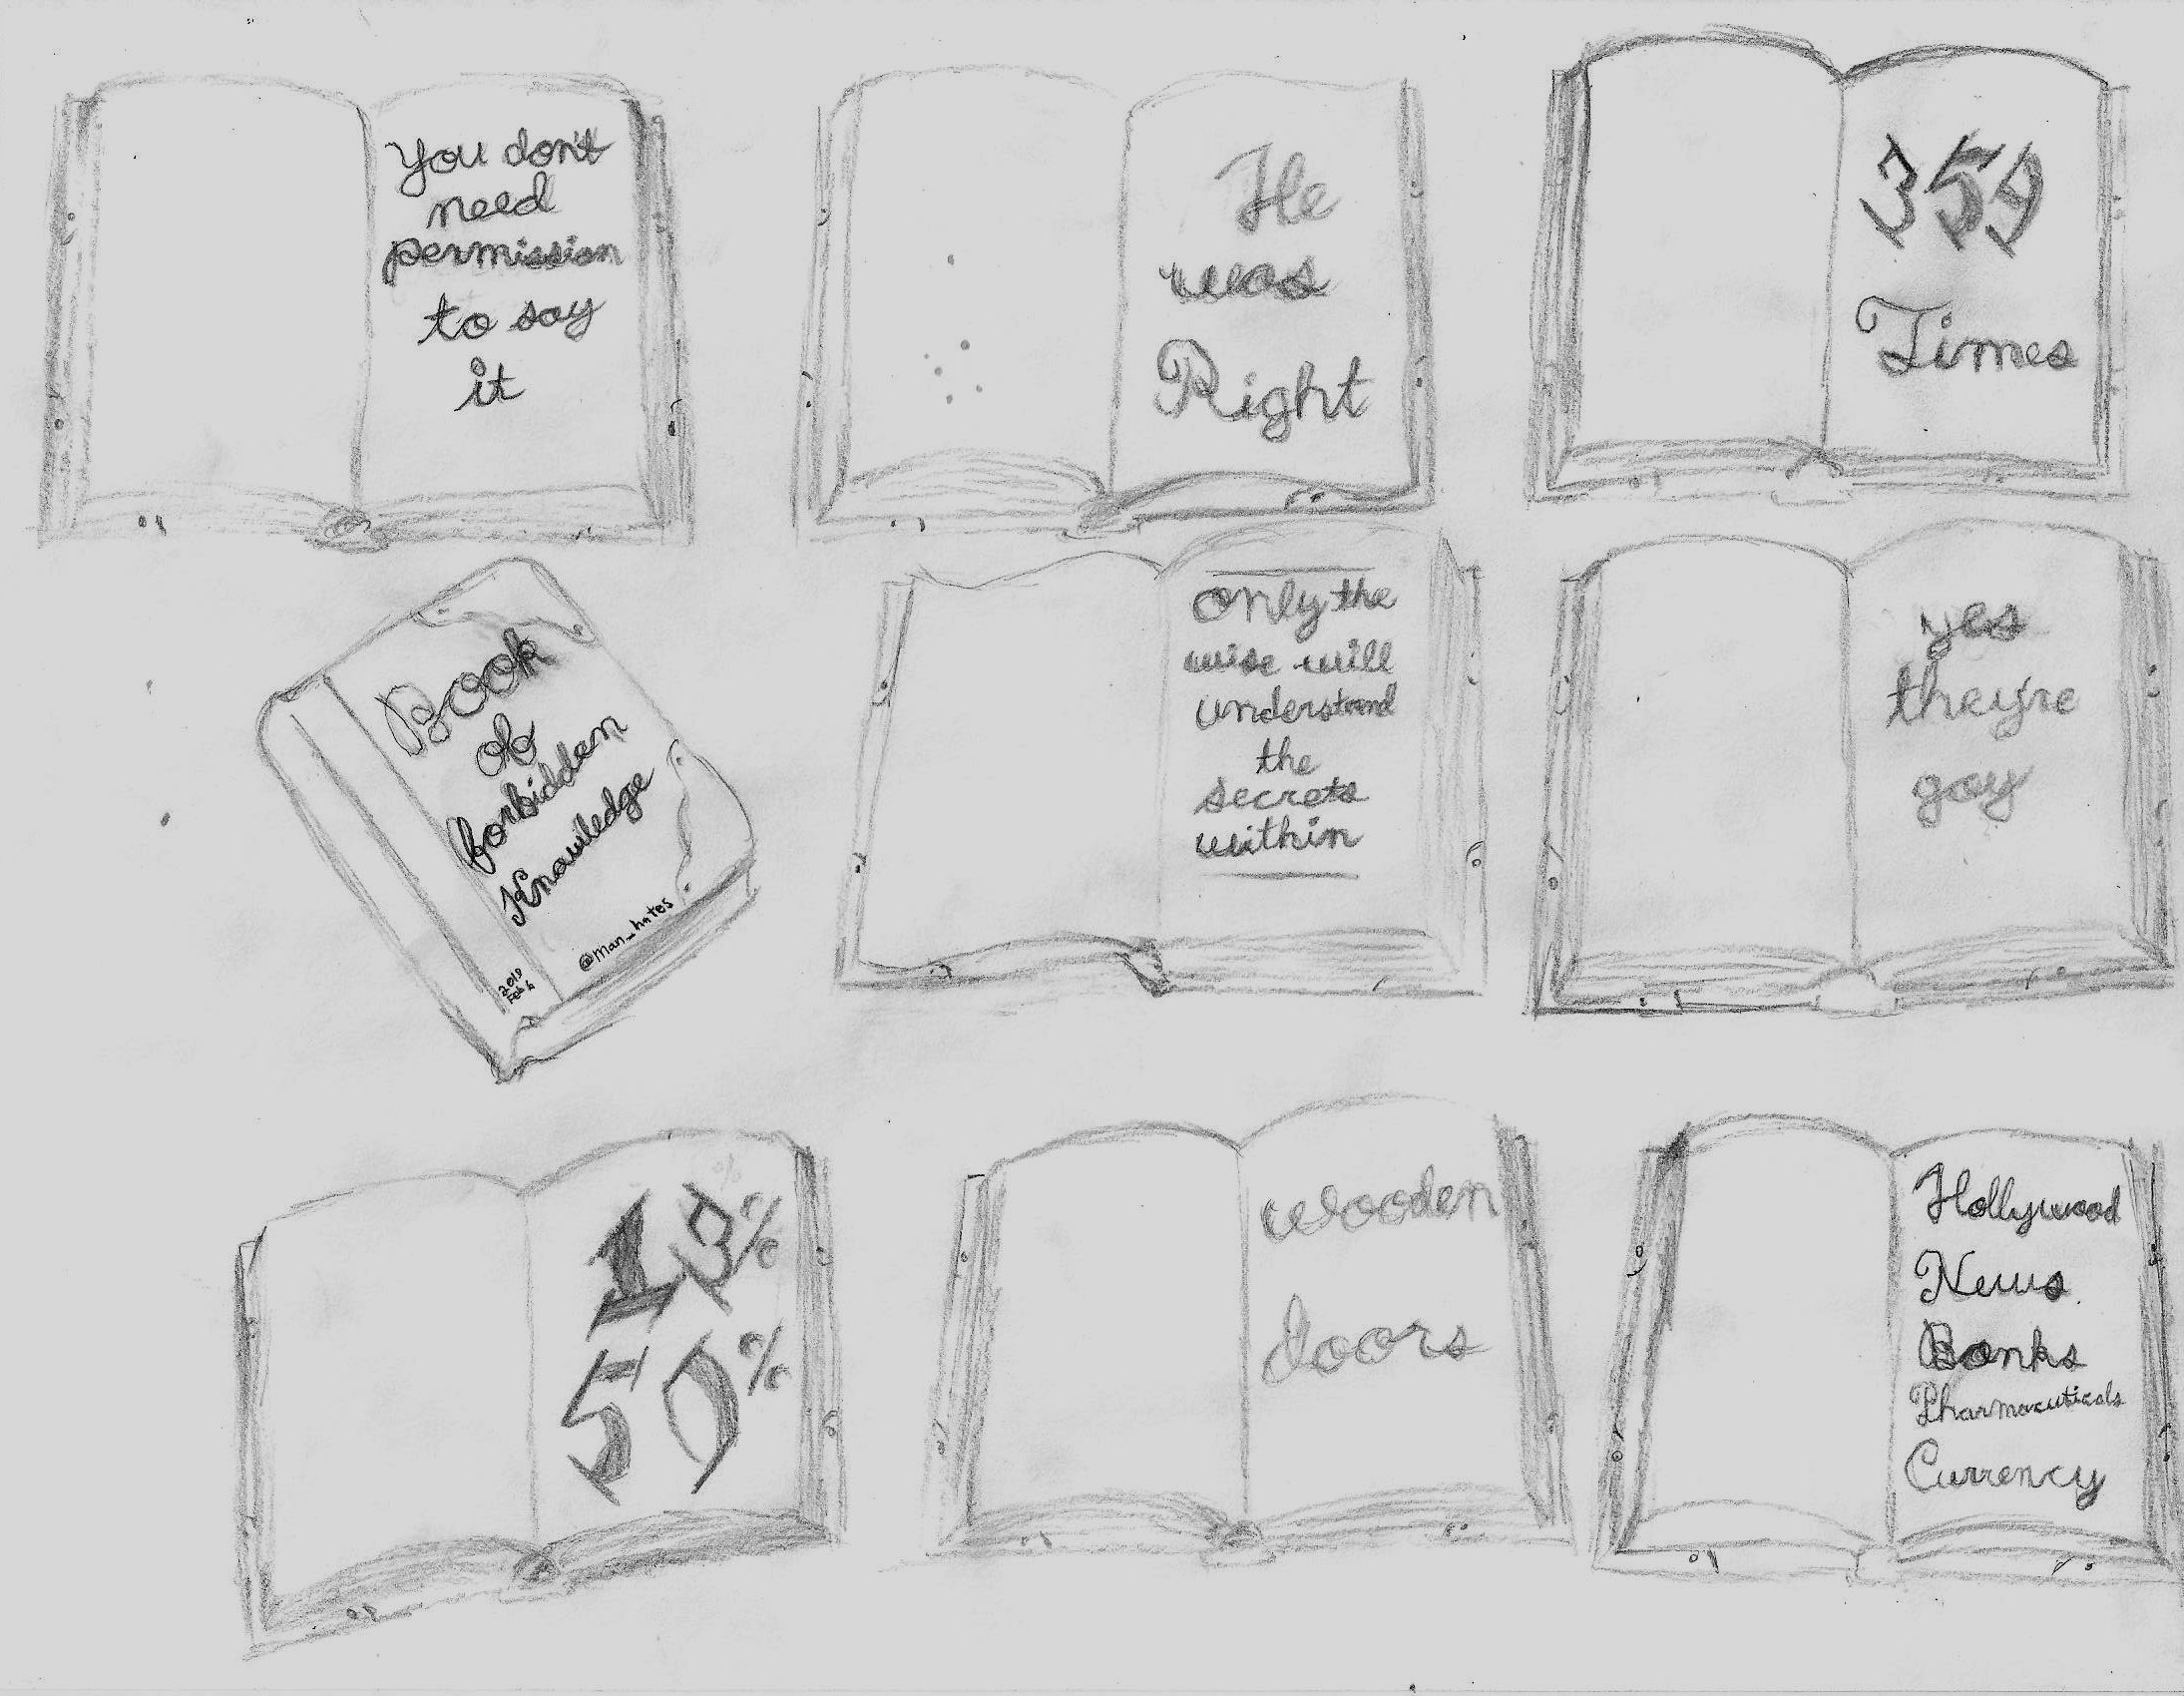 You don't
need
permission
to say
it
He
was
Right
359
Times
Book
of
forbidden
Knowledge
@man_hates
2019
Feb 6
only the
wise will
understand
the
secrets
within
yes
they're
gay
13%
50%
wooden
doors
Hollywood
News
Banks
Pharmaceuticals
Currency